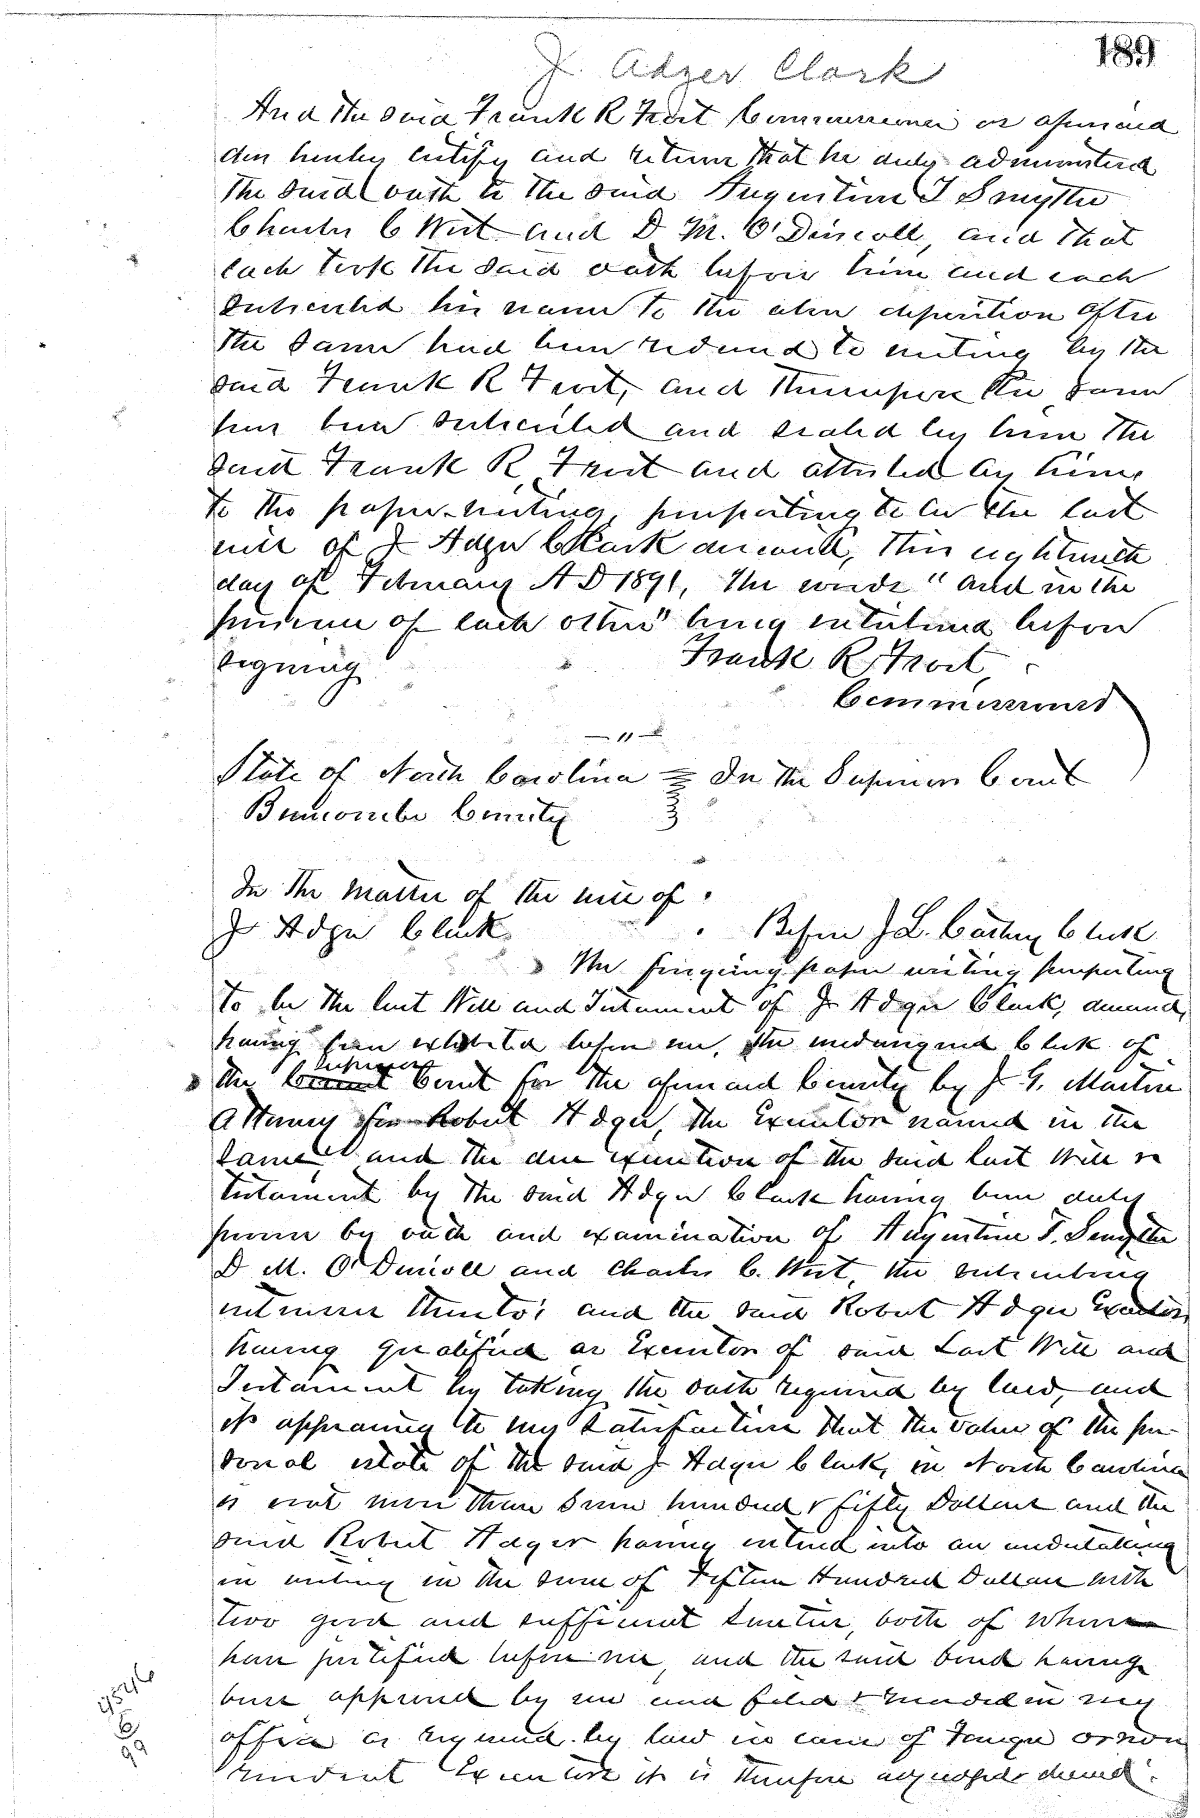 189
J. Adger Clark
And the said Frank R Frost Commissioner as aforesaid
does hereby certify and return that he duly administered
the said oath to the said Augustine T Smythe
Charles C West and D M. O'Driscoll, and that
each took the said oath before him and each
subscribed his name to the above deposition after
the same had been reduced to writing by the
said Frank R Frost, and thereupon the same
has been subscribed and sealed by him the
said Frank R. Frost and attached by him
to the paper-writing, purporting to be the last
will of J Adger Clark deceased, this eighteenth
day of February A D 1891, the words "and in the
presence of each other" being interlined before
signing
Frank R. Frost,
Commissioner
— " —
State of North Carolina In the Superior Court
Buncombe County
In the matter of the will of
J Adger Clark. Before J. L. Cathey Clerk.
The foregoing paper writing purporting
to be the last Will and Testament of J Adger Clark, deceased,
having been exhibited before me, the undersigned Clerk of
Superior
the Court for the aforesaid County by J. G. Martin
Attorney for Robert Adger, the Executor named in the
same and the due execution of the said last Will &
testament by the said Adger Clark having been duly
proven by oath and examination of Augustine T. Smythe
D M. O'Driscoll and Charles C. West, the subscribing
witnesses thereto; and the said Robert Adger Executor
having qualified as Executor of said Last Will and
Testament by taking the oath required by law, and
it appearing to my satisfaction that the value of the per-
sonal estate of the said J Adger Clark, in North Carolina
is not more than Seven hundred & fifty Dollars and the
said Robert Adger having entered into an undertaking
in writing in the sum of Fifteen Hundred Dollars with
two good and sufficient Sureties, both of whom
have justified before me, and the said bond having
been approved by me and filed & recorded in my
office as required by law in case of foreign or non
resident Executors it is therefore adjudged & decreed